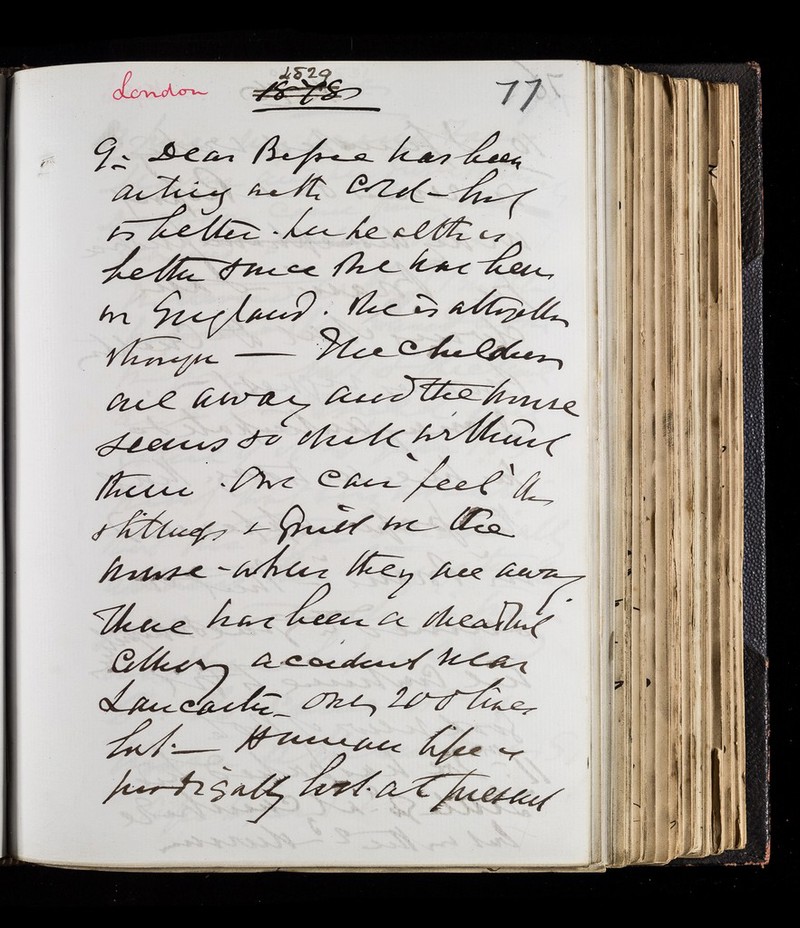 London 1829 77
1878
9: Dear Bessie has been
with cold - but
is better. her health is
better since she has been
in England. she is altogether
stronger — The children
are away and the house
seems so without
them. One can feel
& in the
house - when they are away
There has been a dreadful
Colliery accident near
Lancaster - over 200 lives
lost. — Human life is
prodigally lost. at present